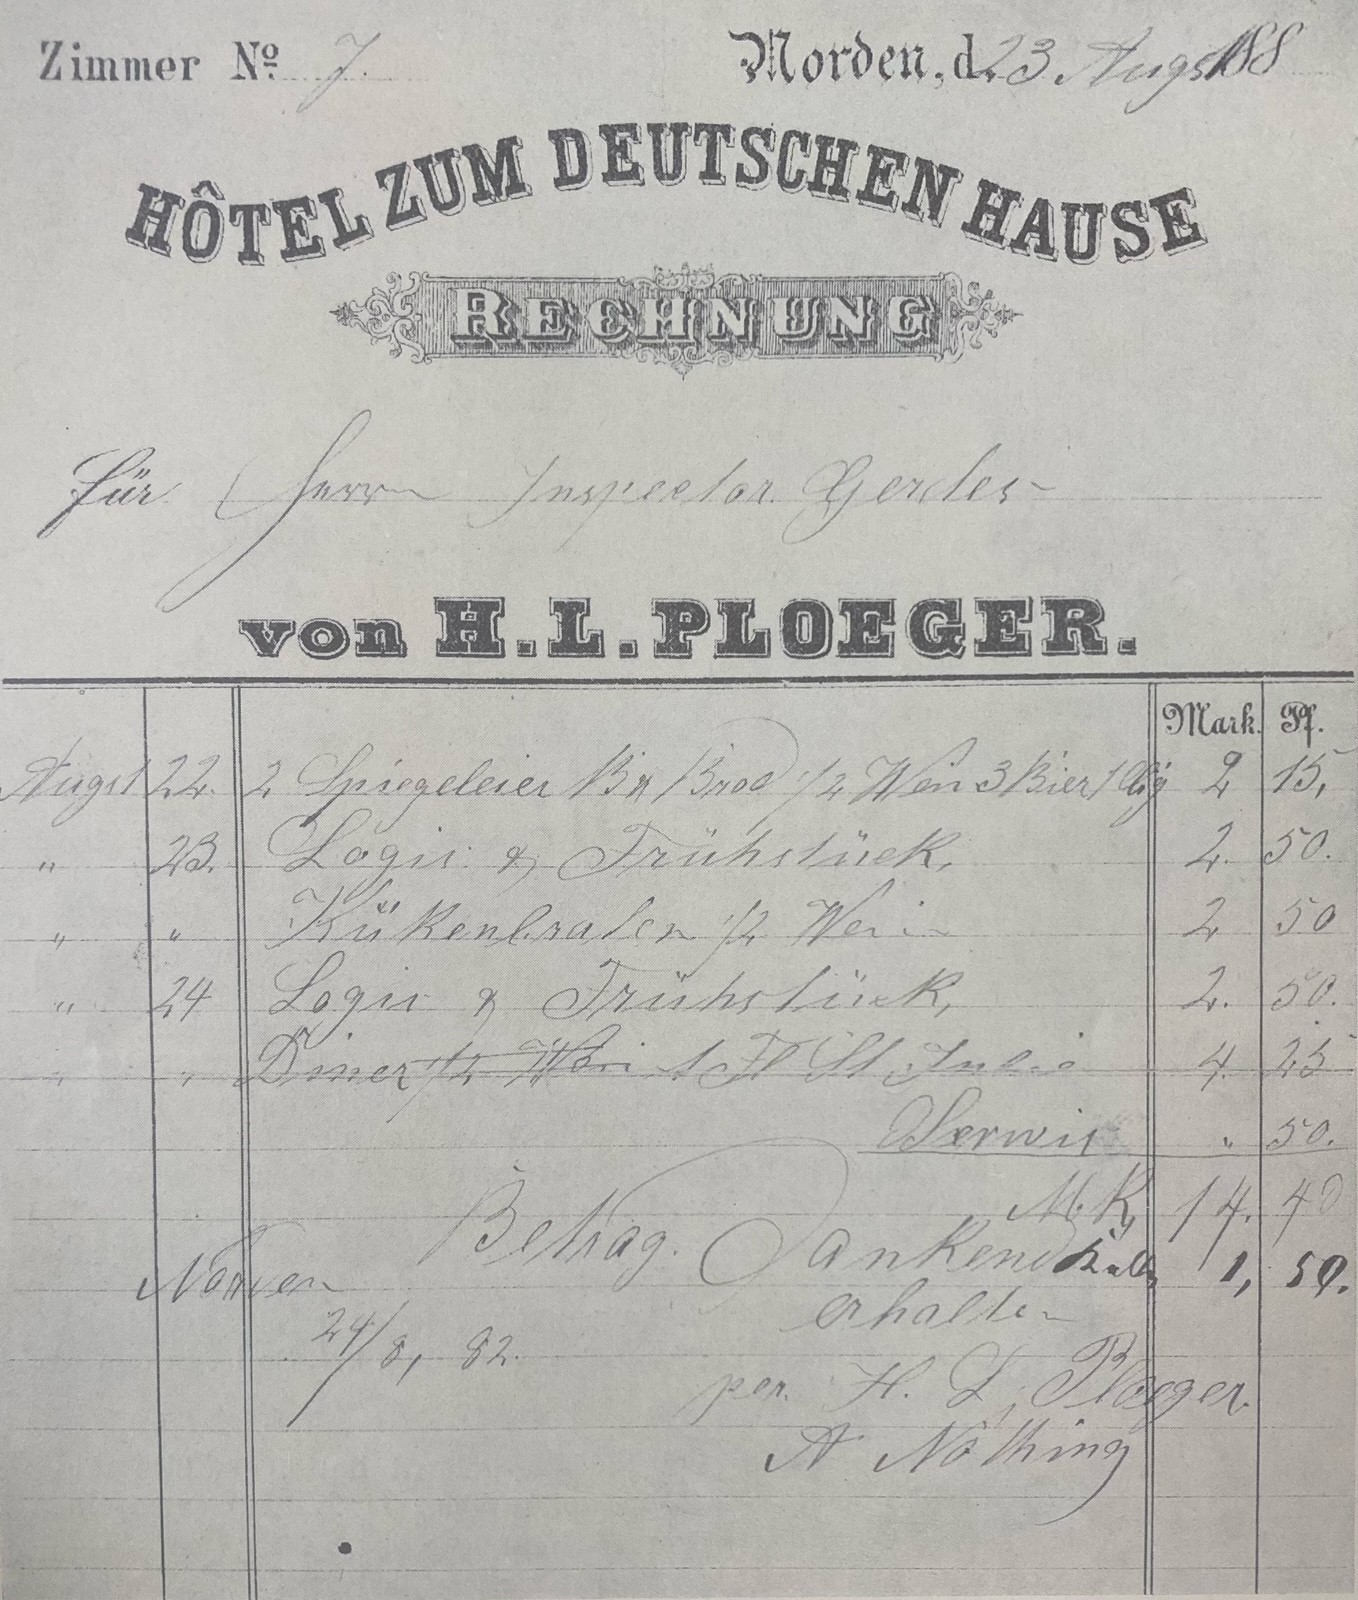 Zimmer No. 7.
Norden, d. 23 Augst 188
HÔTEL ZUM DEUTSCHEN HAUSE
RECHNUNG
für Herrn Inspector Gerdes
von H. L. PLOEGER.
Mark. Pf.
Augst 22. 2 Spiegeleier Brod 1/2 Wein 3 Bier 1 Cig 2 15,
" 23. Logis & Frühstück, 2. 50.
" " Kükenbraten 1/2 Wein 2 50
" 24 Logis & Frühstück, 2. 50.
" " Diner 1/2 Wein 1 Fl St Julie 4. 25
Serwis " 50.
MK, 14. 40
Betrag. Dankend 1, 50.
Norden erhalten
24/8, 82.
per. H. L. Ploeger.
A Nöthing